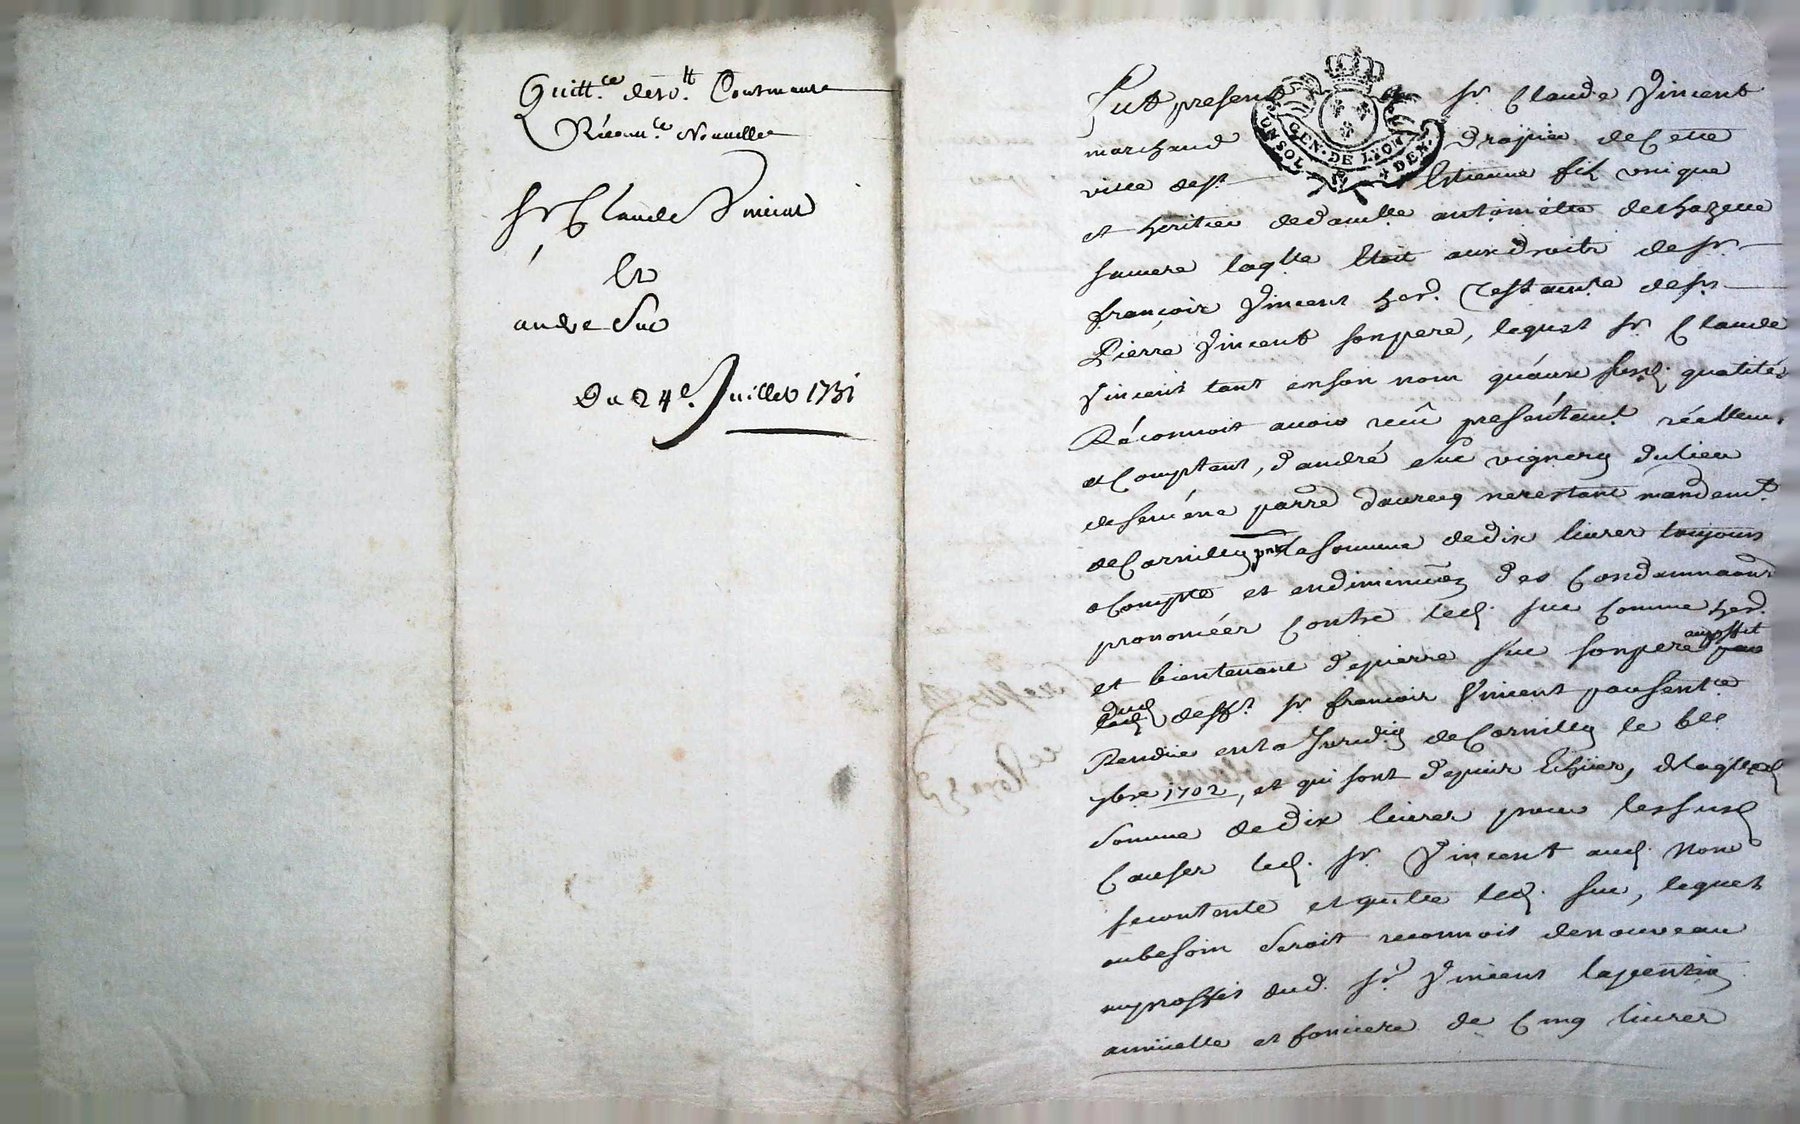 Quitt.ce de 10.tt Contenant
Réconn.ce Nouvelle
Sr Claude Vincent
Et
andre Suc
Du 24e. Juillet 1731
GEN. DE LYON
UN SOL
DEN.
Fut present Sr. Claude Vincent
marchand Drapier de Cette
ville de St. Etienne fils unique
et heritier de d'amlle antoinette deshazette
sa mere laqlle Etoit aux droits de Sr.
françois Vincent her. Testamre de Sr
Pierre Vincent son pere, lequel Sr. Claude
Vincent tant en son nom qu'aux susd. qualités
Réconnoit avoir recû présentemt. réellemt.
et Comptant, d'andré Suc vigneron du lieu
de parre d'aurecq mandemt.
de Cornillon la somme de dix livres toujours
a Compte et en diminuon des Condamnaons
prononcées Contre led. Suc Comme her.
et bientenant de pierre Suc son pere au proffit
dud deft. Sr. francois Vincent par sentce
Rendüe en la Juridon de Cornillon le 6e
7bre 1702, et qui sont depuis Echües, de laqlle
somme de dix livres pour les susd
Causes led. Sr. Vincent aud. Nom
se contente et quitte led. Suc, lequel
au besoin seroit reconnoit de nouveau
au proffit dud. Sr. Vincent la pention
annüelle et fonciere de Cinq livres